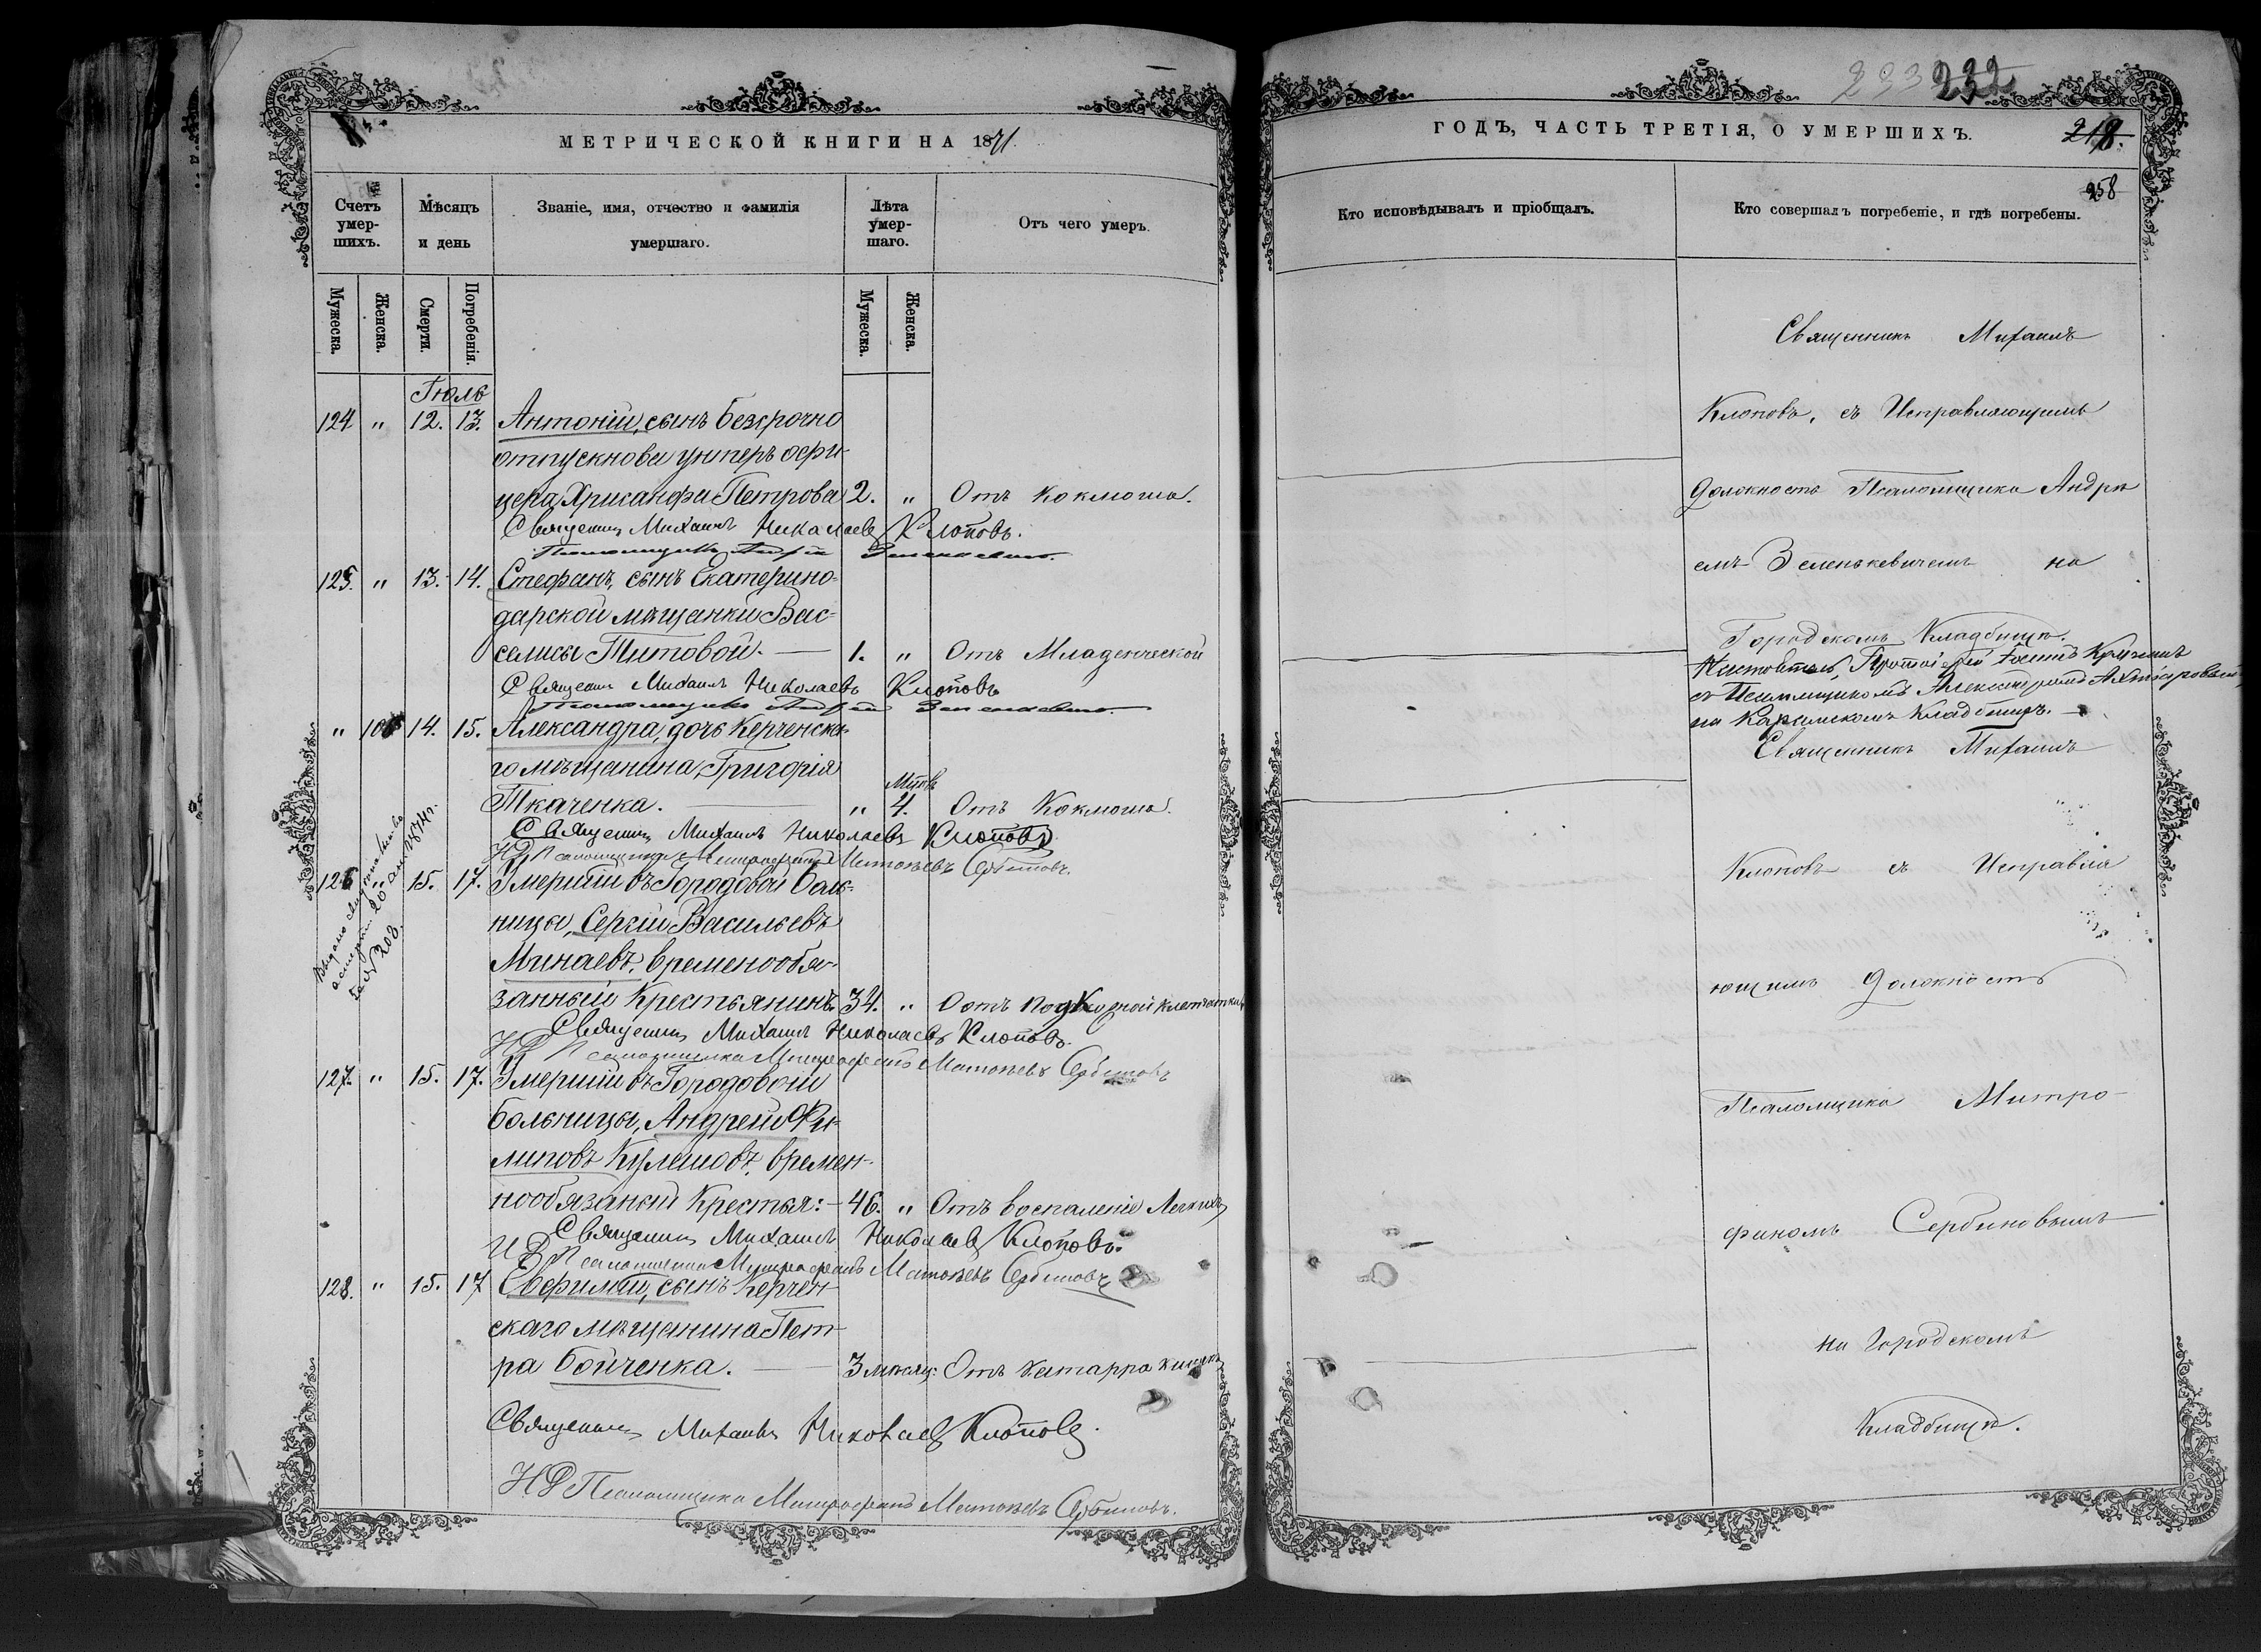 МЕТРИЧЕСКОЙ КНИГИ НА 1871.
Счетъ умер-шихъ.
Мѣсяцъ и день
Званіе, имя, отчество и фамилія умершаго.
Лѣта умер-шаго.
Отъ чего умеръ.
Мужеска.
Женска.
Смерти.
Погребенія.
Мужеска.
Женска.
Іюль
124 " 12. 13. Антоній, сынъ безсрочно
отпускнова унтеръ офи-
цера, Хрисанфа Петрова 2. " Отъ Коклюша.
Священникъ Михаилъ Николаевъ Клоповъ.
Псаломщикъ Андрей Зеленкевичъ.
125. " 13. 14. Стефанъ, сынъ Екатерино-
дарской мѣщанки Вас-
салисы Титовой. 1. " Отъ Младенческой
Священникъ Михаилъ Николаевъ Клоповъ
Псаломщикъ Андрей Зеленкевичъ.
" 14. 15. Александра, дочь Керченска-
го мѣщанина, Григорія
Мцовъ
Ткаченка. " 4. Отъ Коклюша.
Священникъ Михаилъ Николаевъ Клоповъ
ИД Псаломщика Митрофанъ Сербиновъ.
126 " 15. 17. Умершій въ Городовой боль-
ницы, Сергій Васильевъ
Минаевъ, временообя-
занный Крестьянинъ. 34. " Оотъ подкожной клетчатки
Священникъ Михаилъ Николаевъ Клоповъ.
ИД Псаломщика Митрофанъ Сербиновъ
Выдано свидѣтельство
о смерти 20 1874 г.
за № 208.
127. " 15. 17. Умершій въ Городовой
больницы, Андрей Фи-
липовъ Кулешовъ, времен-
нообязаный Крестья: 46. " Отъ воспаленіе Легкихъ
Священникъ Михаилъ Николаевъ Клоповъ.
ИД Псаломщика Митрофанъ Сербиновъ
128. " 15. 17 Евфимій, сынъ Керчен-
скаго мѣщанина Пет-
ра Бойченка. 3 мѣсяц: Отъ катарра кишекъ
Священникъ Михаилъ Николаевъ Клоповъ.
ИД Псаломщика Митрофанъ Сербиновъ.
233 232
ГОДЪ, ЧАСТЬ ТРЕТІЯ, О УМЕРШИХЪ.
218.
258
Кто исповѣдывалъ и пріобщалъ.
Кто совершалъ погребеніе, и гдѣ погребены.
Священникъ Михаилъ
Клоповъ, съ Исправляющимъ
должность Псаломщика Андре
емъ Зеленькевичемъ на
Городскомъ Кладбищѣ.
Настоятель, Протоіерей
съ Псаломщикомъ Александромъ
на Карантскомъ Кладбищѣ.
Священникъ Михаилъ
Клоповъ съ Исправля
ющимъ должность
Псаломщика Митро-
фаномъ Сербиновымъ
на Городскомъ
Кладбищѣ.